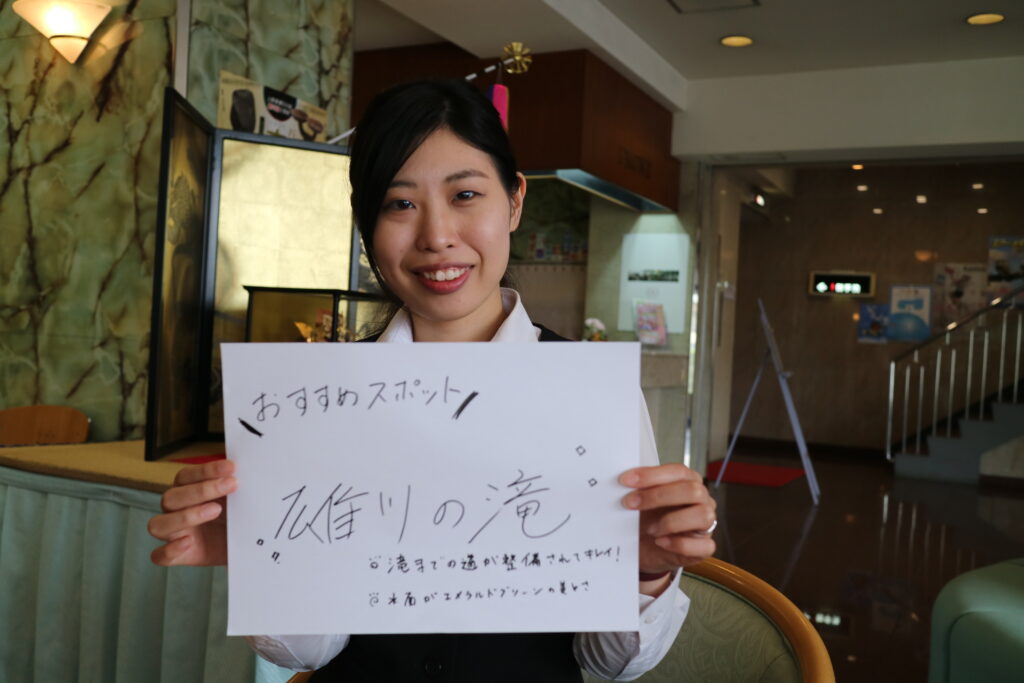 おすすめスポット
雄川の滝
滝までの道が整備されてキレイ!
水面がエメラルドグリーンの美しさ